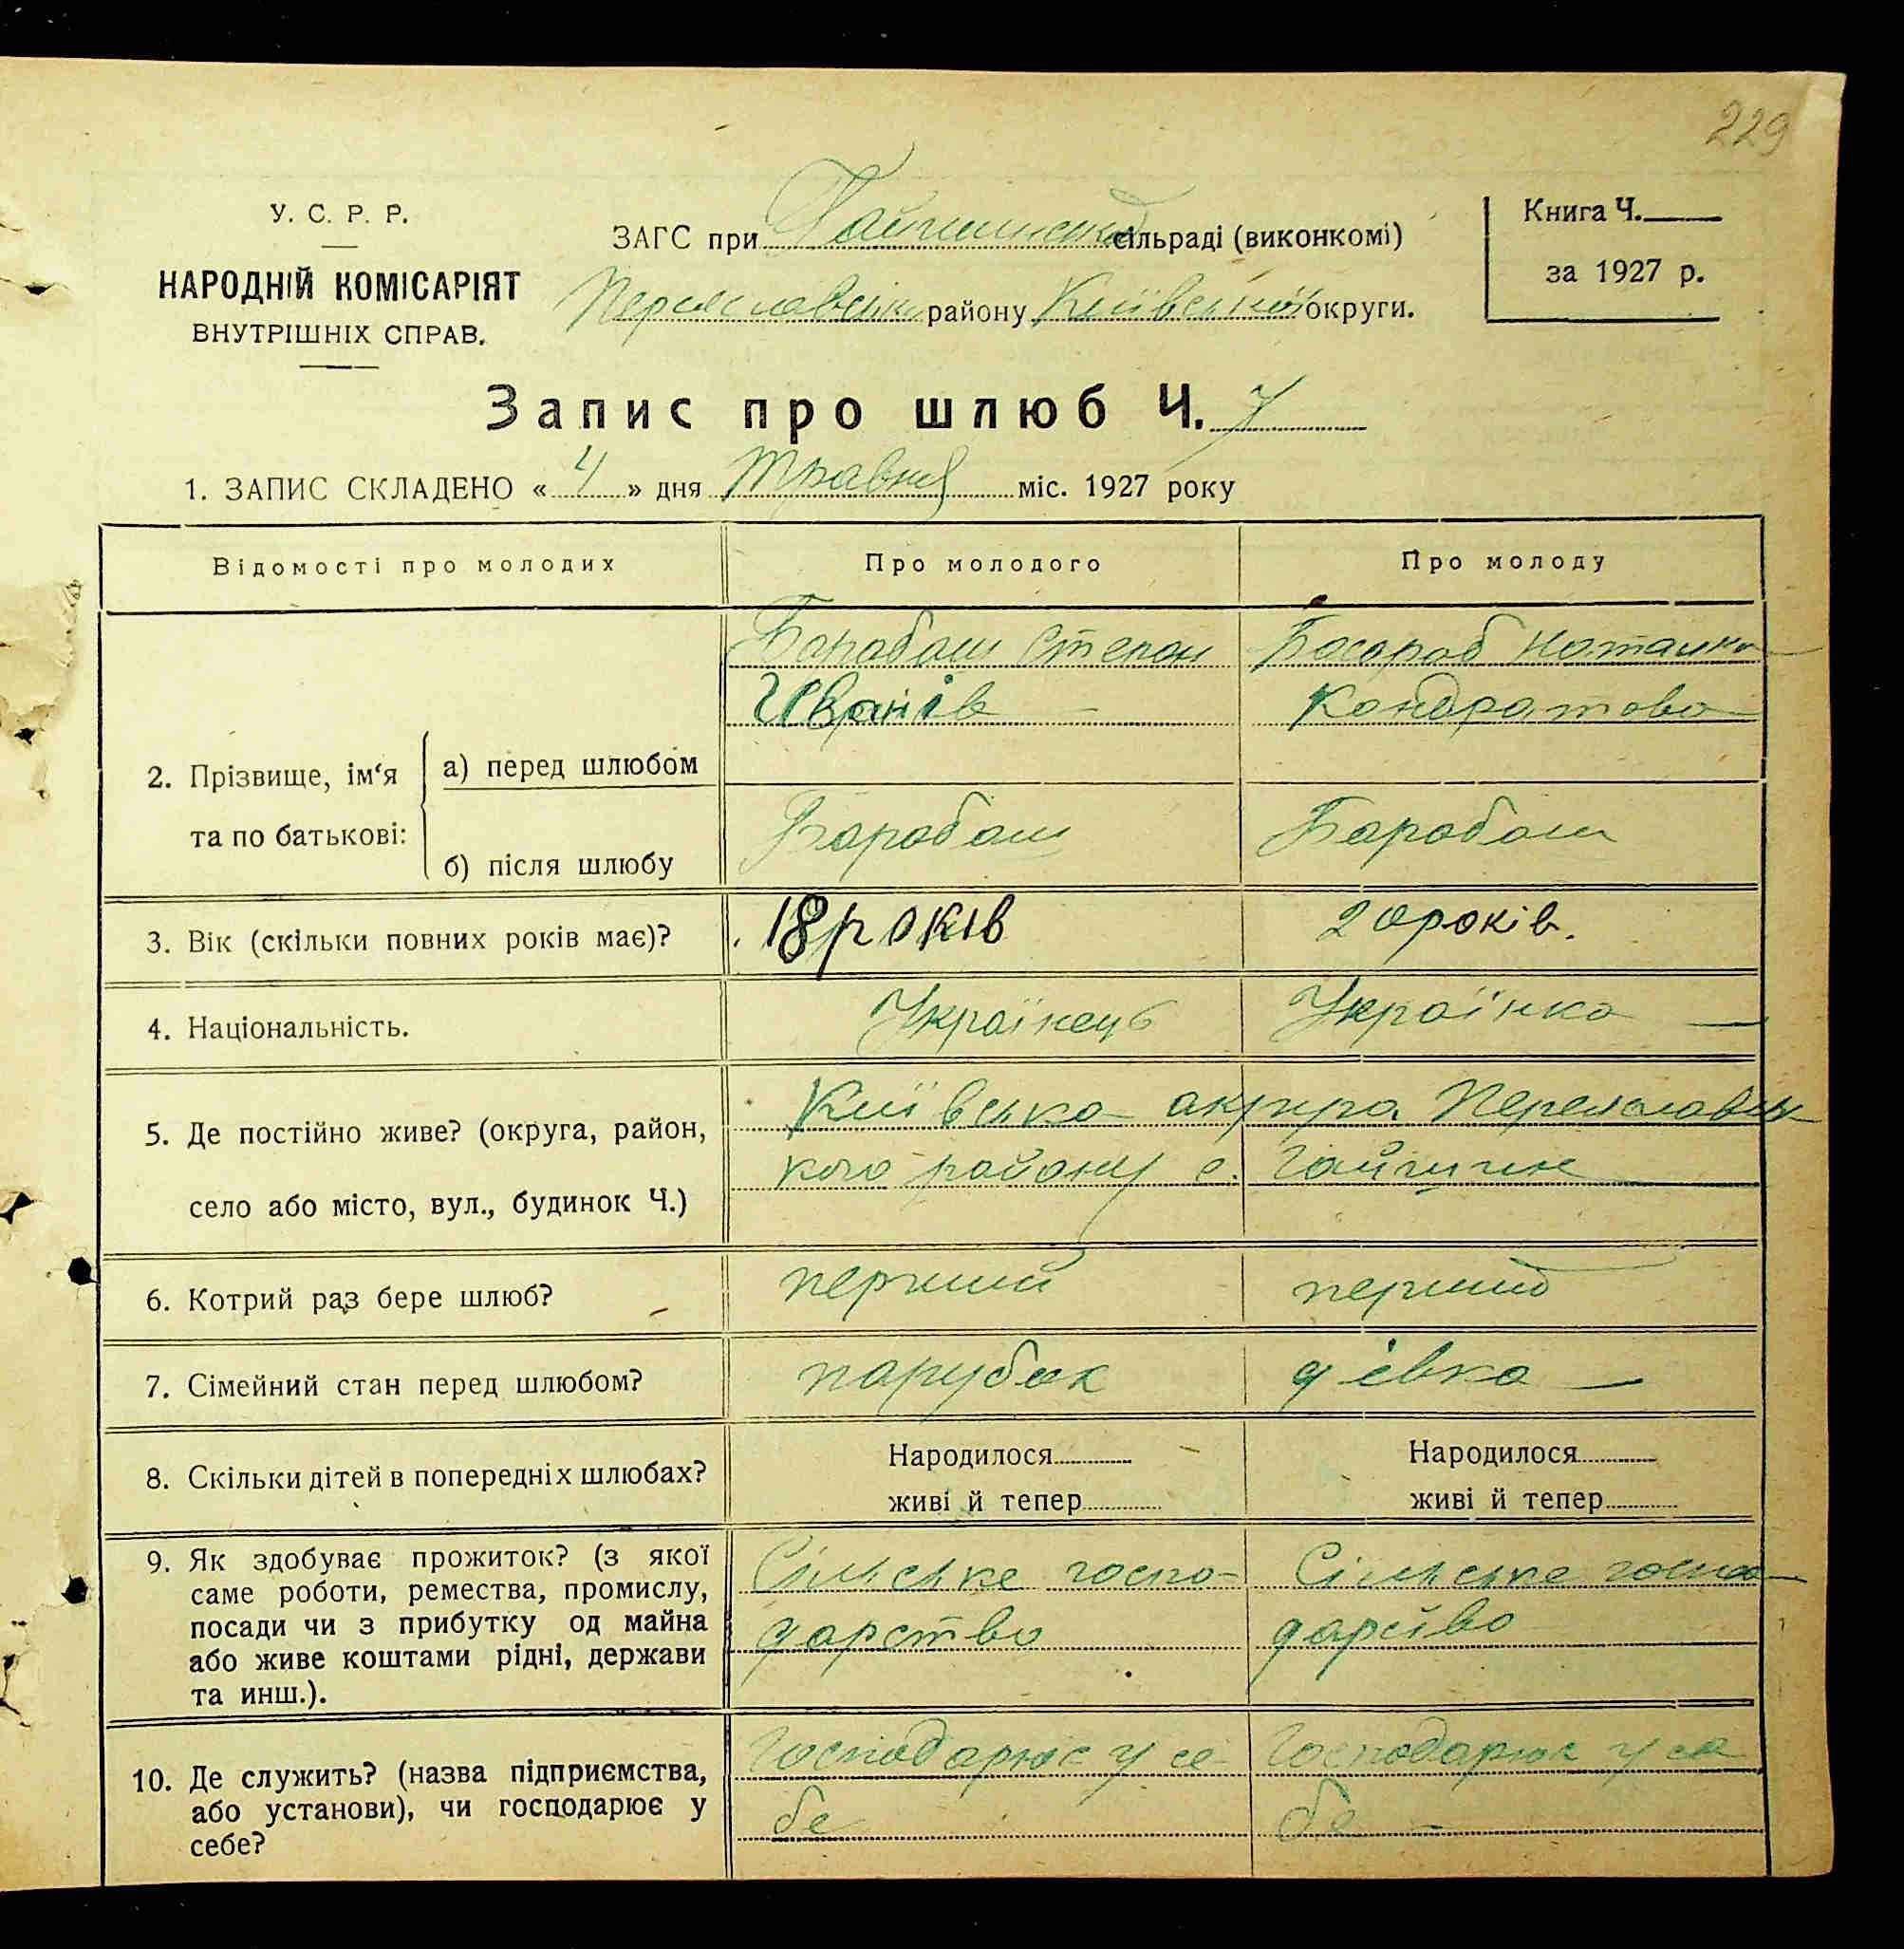 229
У. С. Р. Р.
НАРОДНІЙ КОМІСАРІЯТ
ВНУТРІШНІХ СПРАВ.
ЗАГС при Гайшинській сільраді (виконкомі)
Переяславськ району Київської округи.
Книга Ч.
за 1927 р.
Запис про шлюб Ч. 7
1. ЗАПИС СКЛАДЕНО « 4 » дня Травня міс. 1927 року
Відомості про молодих
Про молодого
Про молоду
2. Прізвище, ім‘я та по батькові:
а) перед шлюбом
Барабаш Степан
Іванів
Басараб Наталка
Кондратова
б) після шлюбу
Барабаш
Барабаш
3. Вік (скільки повних років має)?
18 років
20 років.
4. Національність.
Українець
Українка
5. Де постійно живе? (округа, район,
село або місто, вул., будинок Ч.)
Київська округа Переяславсь
кого району с. Гайшин
6. Котрий раз бере шлюб?
перший
перший
7. Сімейний стан перед шлюбом?
парубок
дівка
8. Скільки дітей в попередніх шлюбах?
Народилося
живі й тепер
Народилося
живі й тепер
9. Як здобуває прожиток? (з якої
саме роботи, ремества, промислу,
посади чи з прибутку од майна
або живе коштами рідні, держави
та инш.).
Сільське госпо-
дарство
Сільське госпо-
дарство
10. Де служить? (назва підприємства,
або установи), чи господарює у
себе?
Господарює у се
бе
Господарює у се
бе